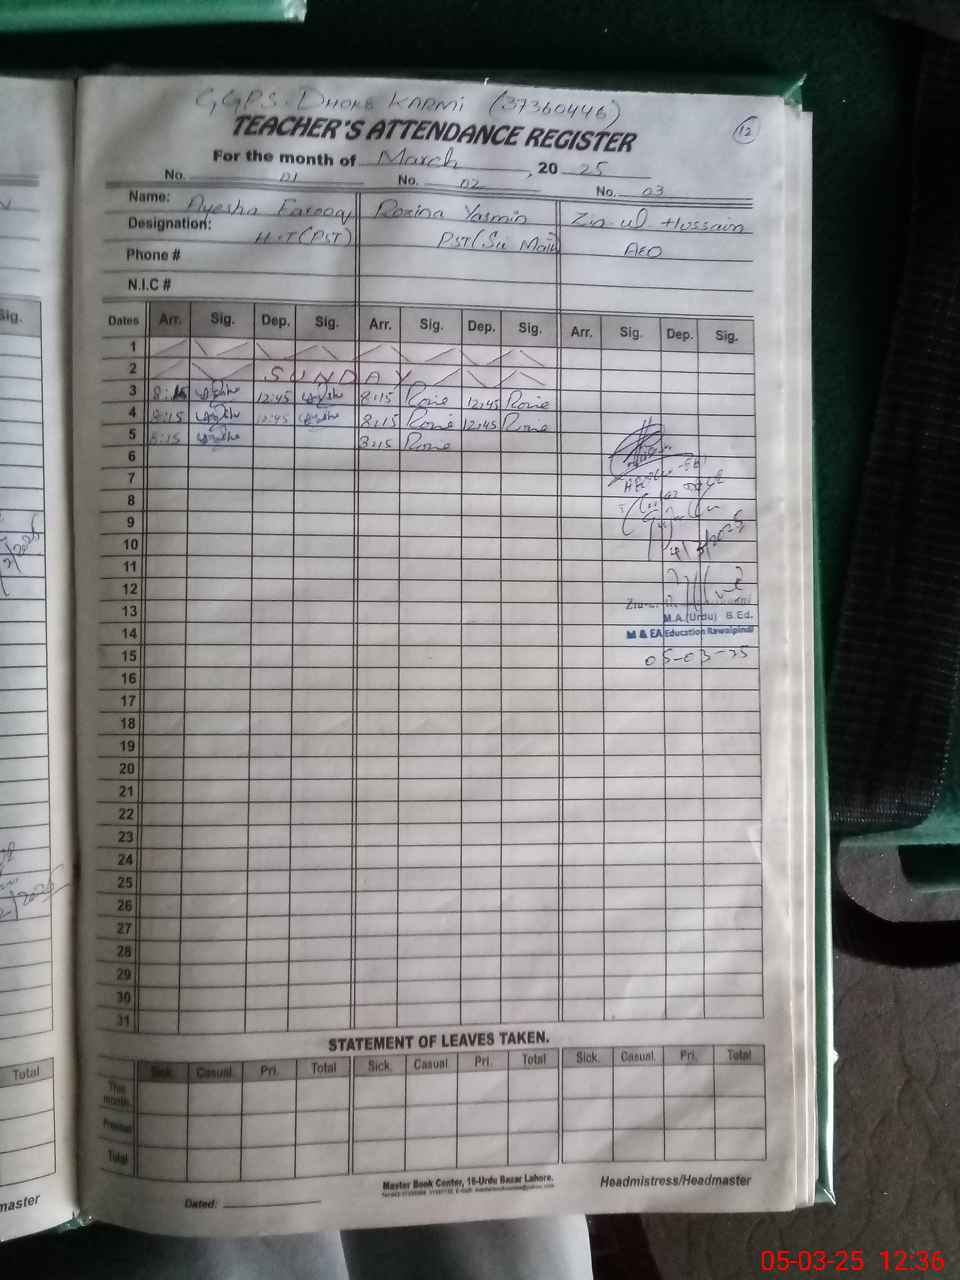 GGPS. DHOKE KARMI (37360446)
TEACHER'S ATTENDANCE REGISTER
12
For the month of March, 20 25
No. 01 No. 02 No. 03
Name: Ayesha Farooq Rozina Yasmin Zia-ul-Hussain
Designation: H.T (PST) PST AEO
Phone #
N.I.C #
Dates Arr. Sig. Dep. Sig. Arr. Sig. Dep. Sig. Arr. Sig. Dep. Sig.
1
2 SUNDAY
3 8:15 12:45 8:15 Rozie 12:45 Rozie
4 8:15 12:45 8:15 Rozie 12:45 Rozie
5 8:15 8:15 Rozie
6
7
8
9
10
11
12
13
M.A.(Urdu) B.Ed.
14
M & EA Education Rawalpindi
15
05-03-25
16
17
18
19
20
21
22
23
24
25
26
27
28
29
30
31
STATEMENT OF LEAVES TAKEN.
Sick. Casual. Pri. Total Sick. Casual Pri. Total Sick. Casual. Pri. Total
This month.
Previous
Total
Master Book Center, 16-Urdu Bazar Lahore.
Dated:
Headmistress/Headmaster
Sig.
Total
master
05-03-25 12:36